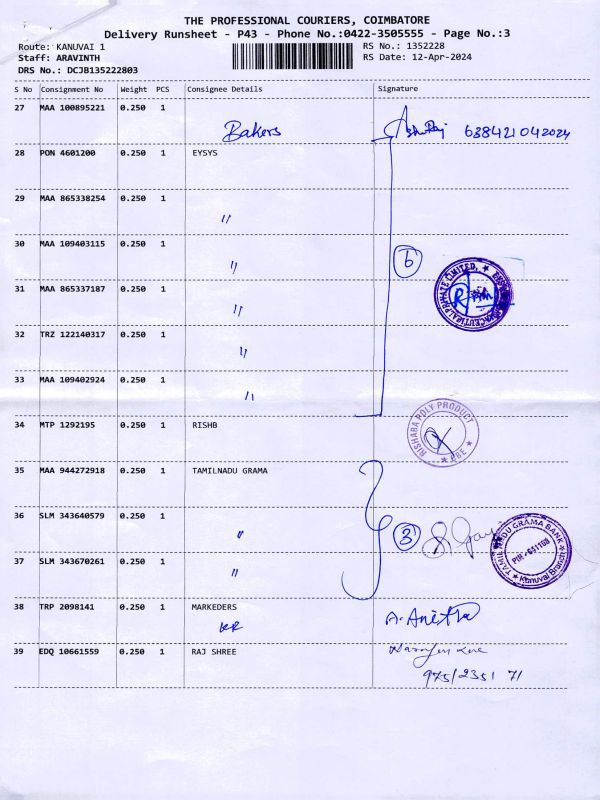 THE PROFESSIONAL COURIERS, COIMBATORE
Delivery Runsheet - P43 - Phone No.:0422-3505555 - Page No.:3
Route: KANUVAI 1 RS No.: 1352228
Staff: ARAVINTH RS Date: 12-Apr-2024
DRS No.: DCJB135222803
S No Consignment No Weight PCS Consignee Details Signature
27 MAA 100895221 0.250 1
Bakers 638421042024
28 PON 4601200 0.250 1 EYSYS
29 MAA 865338254 0.250 1
"
30 MAA 109403115 0.250 1
" 6
31 MAA 865337187 0.250 1
"
PRIVATE LIMITED
32 TRZ 122140317 0.250 1
"
33 MAA 109402924 0.250 1
"
34 MTP 1292195 0.250 1 RISHB
RISHABA POLY PRODUCT
35 MAA 944272918 0.250 1 TAMILNADU GRAMA
36 SLM 343640579 0.250 1
" 3
TAMIL NADU GRAMA BANK
Kanuvai Branch
37 SLM 343670261 0.250 1
"
38 TRP 2098141 0.250 1 MARKEDERS
A. Anitha
39 EDQ 10661559 0.250 1 RAJ SHREE